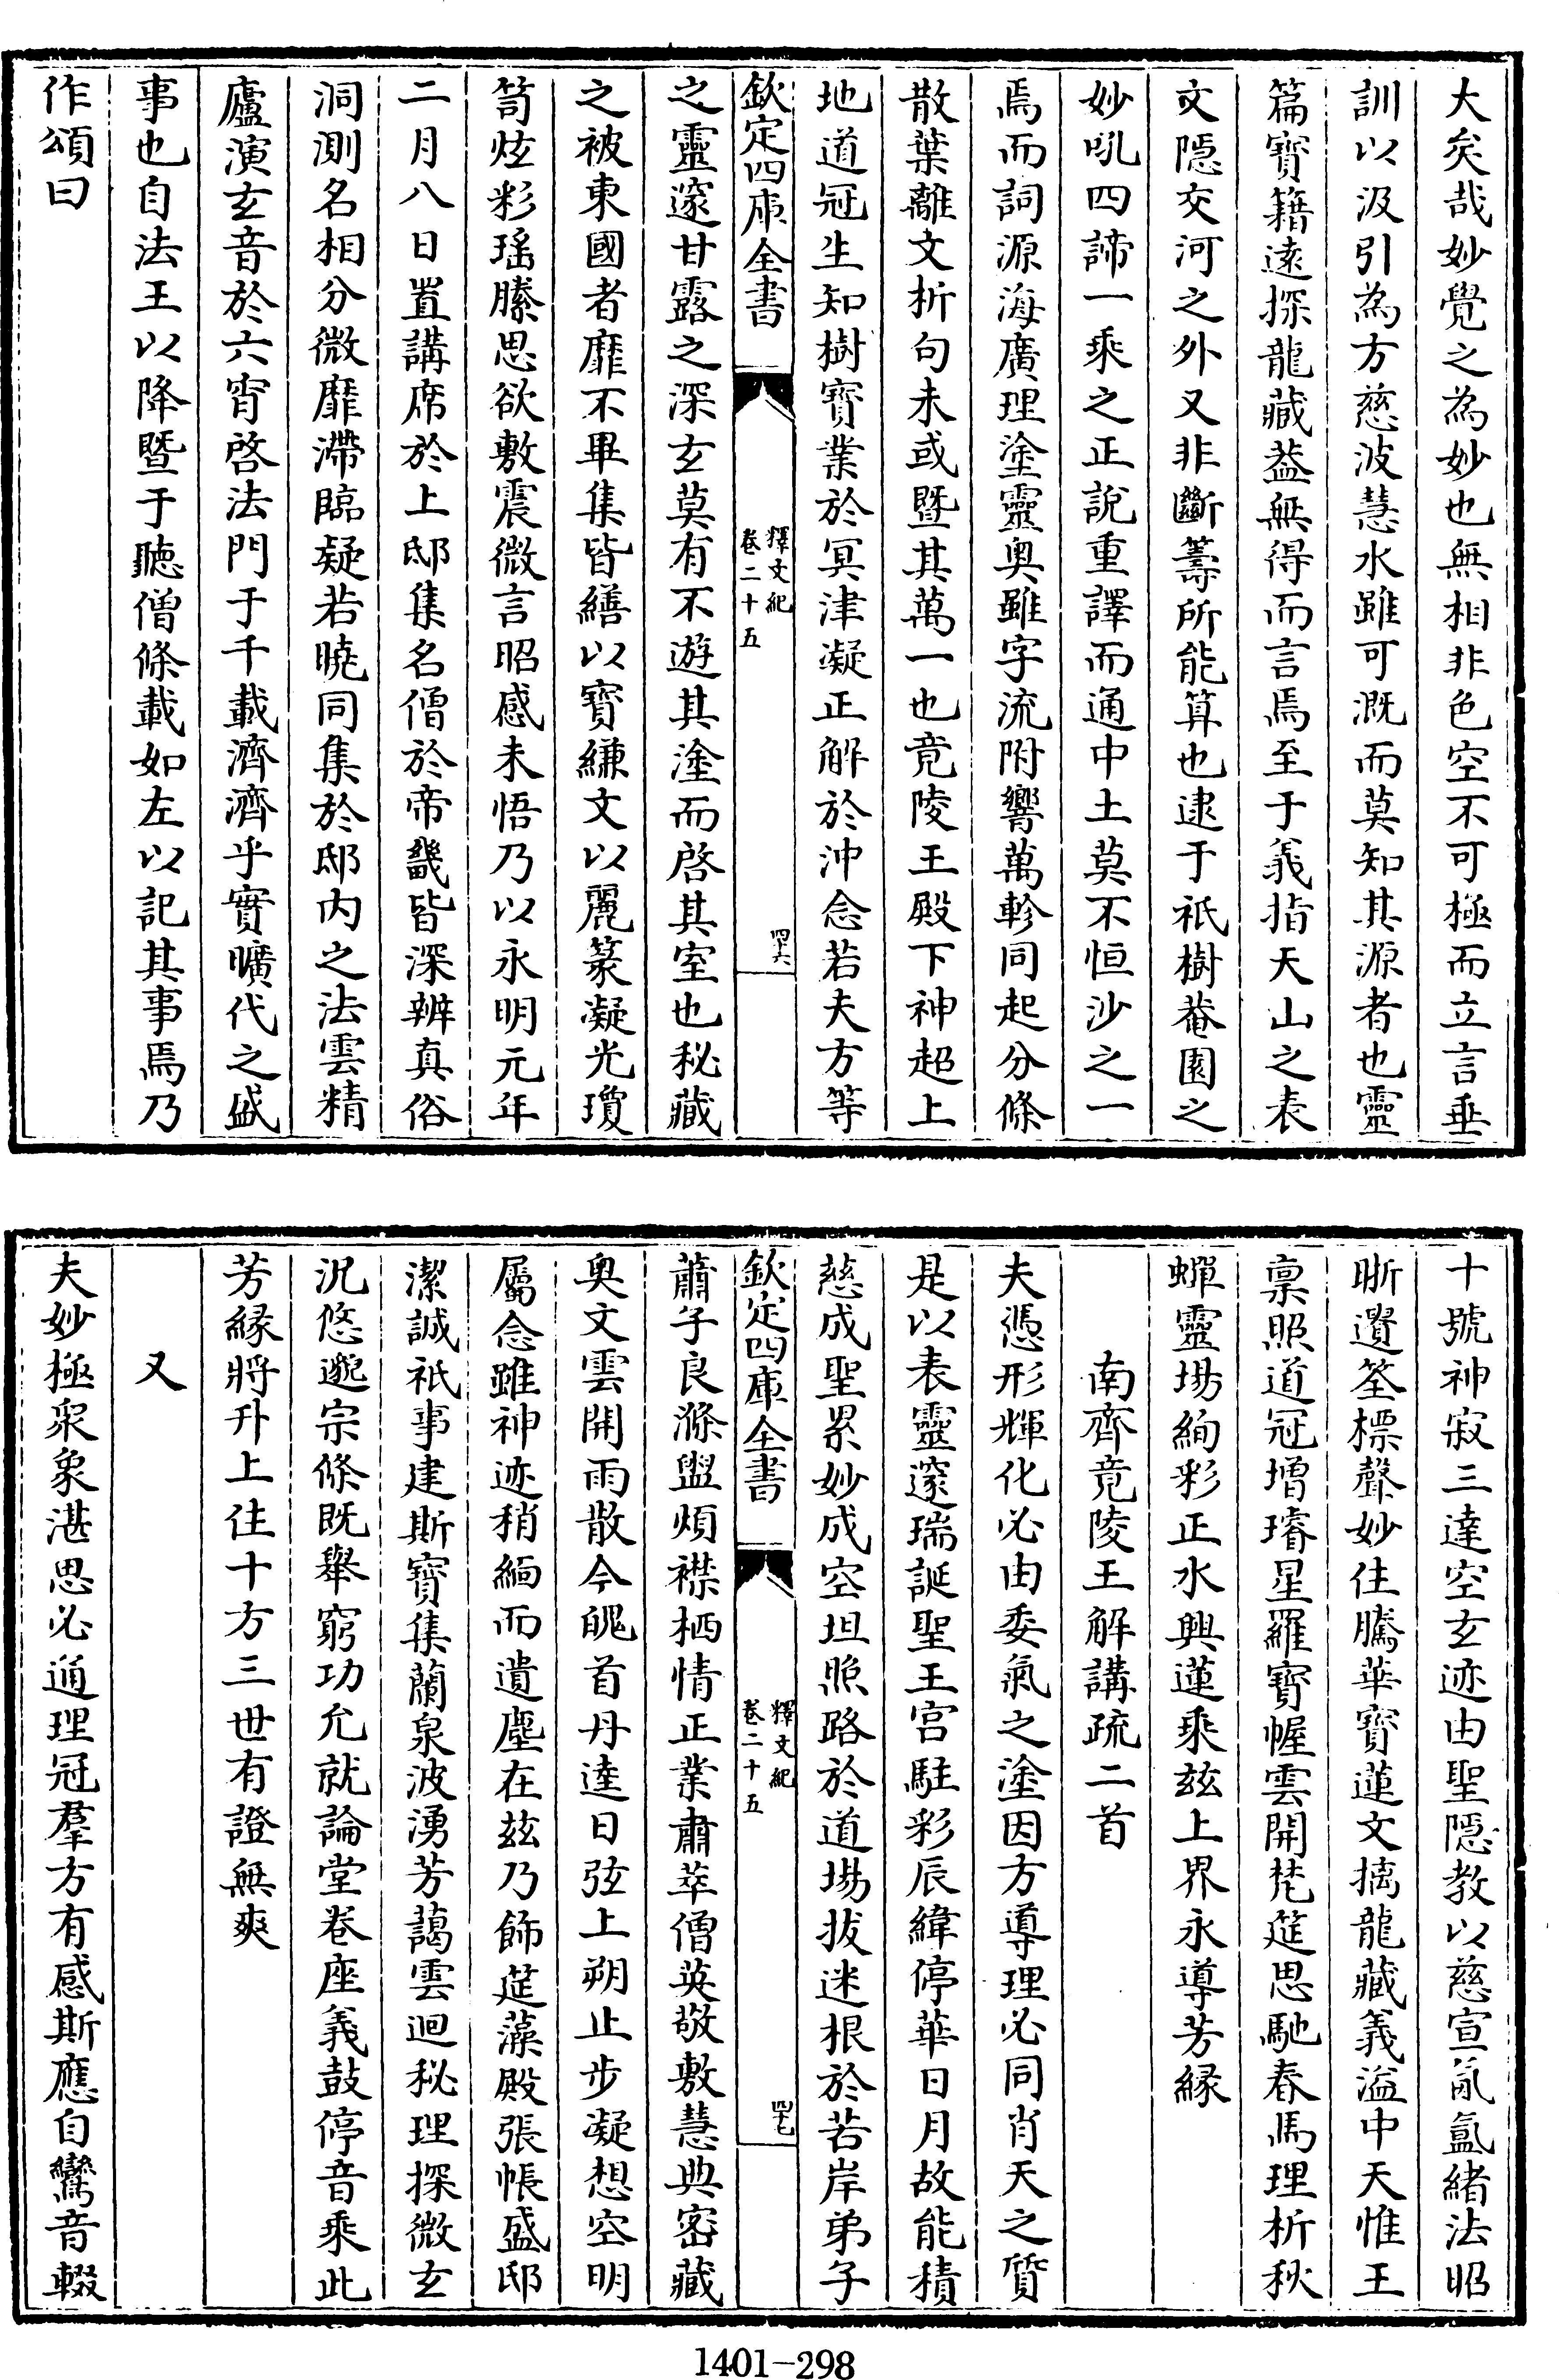 大矣哉妙覺之為妙也無相非色空不可極而立言垂
訓以汲引為方慈波慧水雖可溉而莫知其源者也靈
篇寶籍遠探龍藏葢無得而言焉至于義指天山之表
文隱交河之外又非斷籌所能算也逮于祇樹菴園之
妙吼四諦一乘之正說重譯而通中土莫不恒沙之一
焉而詞源海廣理塗靈奥雖字流附響萬軫同起分條
散葉離文析句未或暨其萬一也竟陵王殿下神超上
地道冠生知樹寶業於冥津凝正解於沖念若夫方等
欽定四庫全書
釋文紀
卷二十五
四十六
之靈邃甘露之深玄莫有不遊其塗而啓其室也秘藏
之被東國者靡不畢集皆繕以寶縑文以麗篆凝光瓊
笥炫彩瑤縢思欲敷震微言昭感未悟乃以永明元年
二月八日置講席於上邸集名僧於帝畿皆深辨真俗
洞測名相分微靡滯臨疑若曉同集於邸内之法雲精
廬演玄音於六宵啓法門于千載濟濟乎實曠代之盛
事也自法王以降暨于聽僧條載如左以記其事焉乃
作頌曰
十號神寂三達空玄迹由聖隱教以慈宣氤氳緒法昭
晣遺筌標聲妙住騰華寶蓮文摛龍藏義溢中天惟王
稟照道冠增璿星羅寶幄雲開梵筵思馳春馬理析秋
蟬靈場絢彩正水興蓮乘兹上界永導芳緣
南齊竟陵王解講疏二首
夫憑形輝化必由委氣之塗因方導理必同肖天之質
是以表靈邃瑞誕聖王宫駐彩辰緯停華日月故能積
慈成聖累妙成空坦照路於道場拔迷根於苦岸弟子
欽定四庫全書
釋文紀
卷二十五
四十七
蕭子良滌盥煩襟栖情正業肅萃僧英敬敷慧典密藏
奥文雲開雨散今魄首丹逵日弦上朔止步凝想空明
屬念雖神迹稍緬而遺塵在兹乃飾筵藻殿張帳盛邸
潔誠祇事建斯寶集蘭泉波湧芳藹雲迴秘理探微玄
況悠邈宗條既舉窮功允就論堂卷座義鼓停音乘此
芳緣將升上住十方三世有證無爽
又
夫妙極衆象湛思必通理冠羣方有感斯應自鸞音輟
1401-298